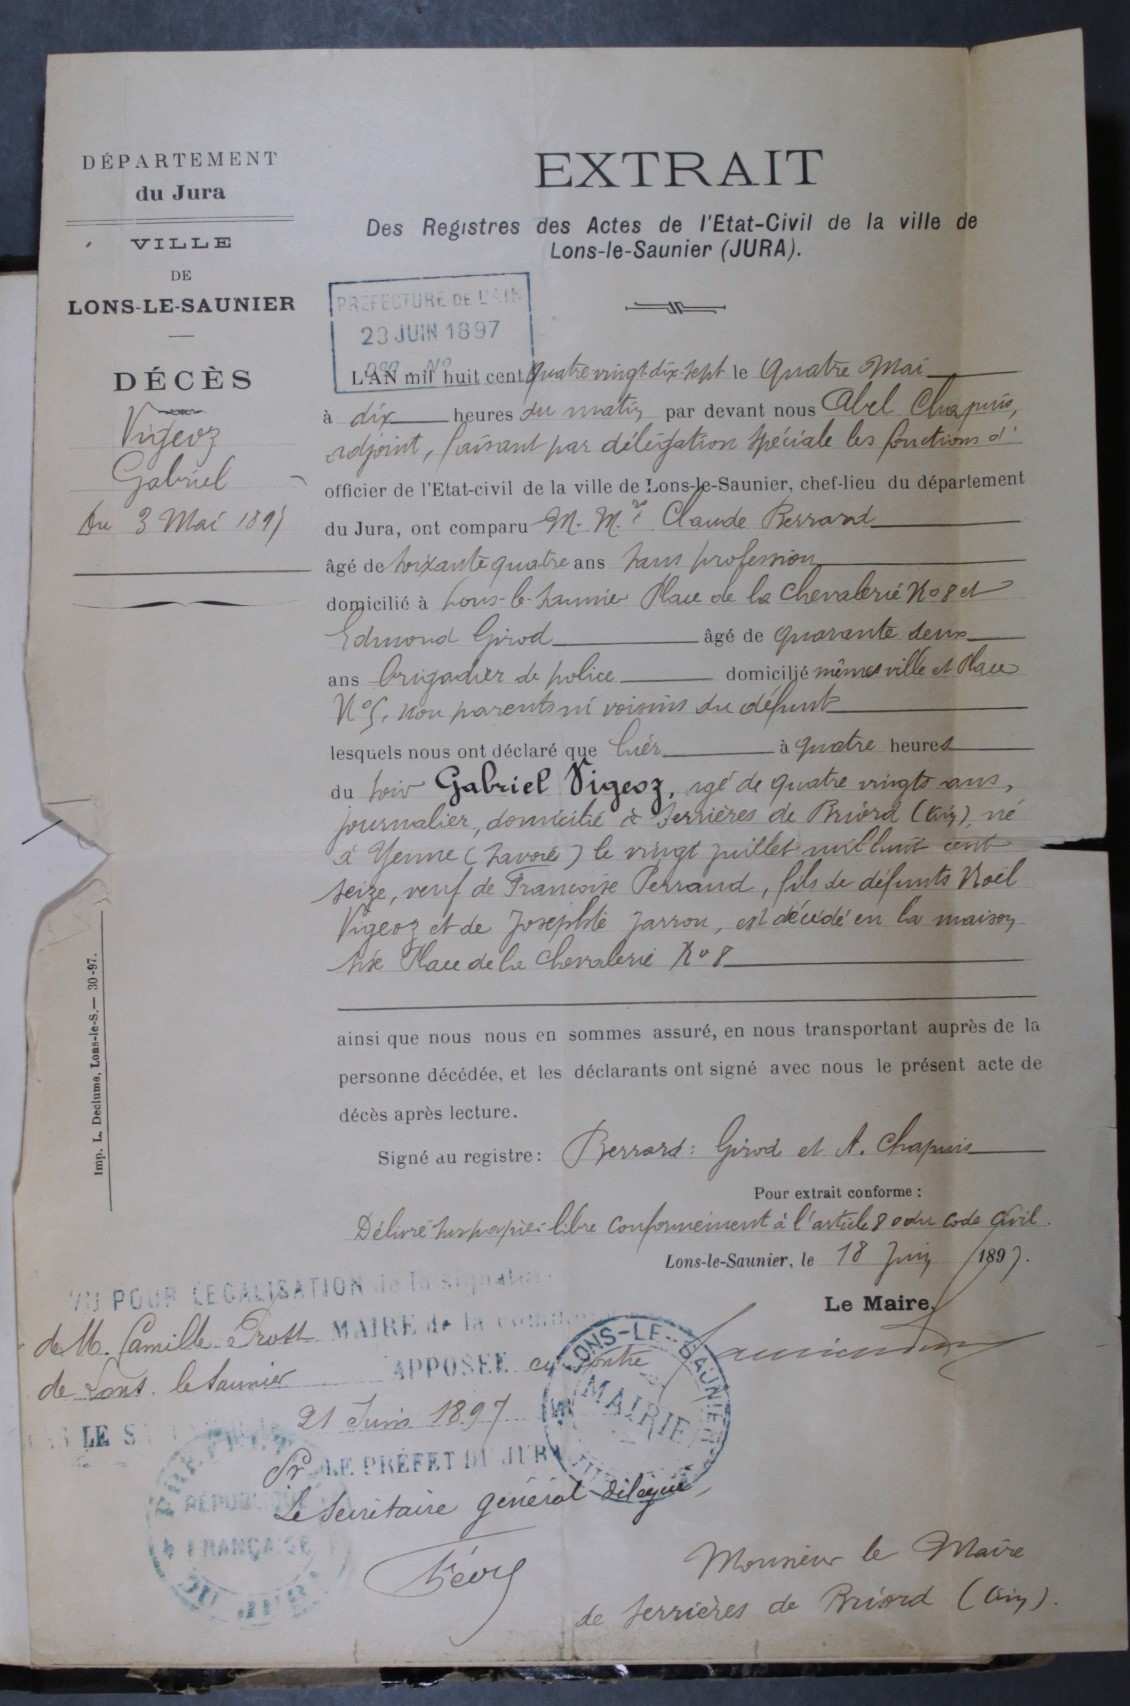 DÉPARTEMENT
du Jura
VILLE
DE
LONS-LE-SAUNIER
DÉCÈS
Vigeoz
Gabriel
Du 3 Mai 1897
Imp. L. Declume, Lons-le-S. — 30-97.
EXTRAIT
Des Registres des Actes de l'Etat-Civil de la ville de
Lons-le-Saunier (JURA).
PRÉFECTURE DE L'AIN
23 JUIN 1897
No
L'AN mil huit cent quatre vingt dix-sept le Quatre Mai
à dix heures du matin par devant nous Abel Chapuis,
adjoint, faisant par délégation spéciale les fonctions d'
officier de l'Etat-civil de la ville de Lons-le-Saunier, chef-lieu du département
du Jura, ont comparu M. M.rs Claude Berrard
âgé de soixante quatre ans sans profession
domicilié à Lons-le-Saunier Place de la Chevalerie No 8 et
Edmond Girod âgé de quarante deux
ans brigadier de police domicilié mêmes ville et Place
No 5, non parents ni voisins du défunt
lesquels nous ont déclaré que hier à quatre heures
du soir Gabriel Vigeoz, agé de quatre vingts ans,
journalier, domicilié à Serrières de Briord (Ain), né
à Yenne (Savoie) le vingt juillet mil huit cent
seize, veuf de Françoise Perraud, fils de défunts Noël
Vigeoz et de Josephte Jarron, est décédé en la maison
sise Place de la Chevalerie No 8
ainsi que nous nous en sommes assuré, en nous transportant auprès de la
personne décédée, et les déclarants ont signé avec nous le présent acte de
décès après lecture.
Signé au registre : Berrard : Girod et A. Chapuis
Pour extrait conforme :
Délivré sur papier libre conformément à l'article 80 du Code Civil.
Lons-le-Saunier, le 18 Juin 1897.
Le Maire,
VU POUR LÉGALISATION de la signature
de M. Camille Prost MAIRE de la commune
de Lons-le Saunier APPOSÉE ci contre
LONS-LE-SAUNIER
MAIRIE
JURA
LE
21 Juin 1897
Pr LE PRÉFET DU JURA
Le Secrétaire général délégué,
RÉPUBLIQUE
FRANÇAISE
DU JURA
Monsieur le Maire
de Serrières de Briord (Ain).